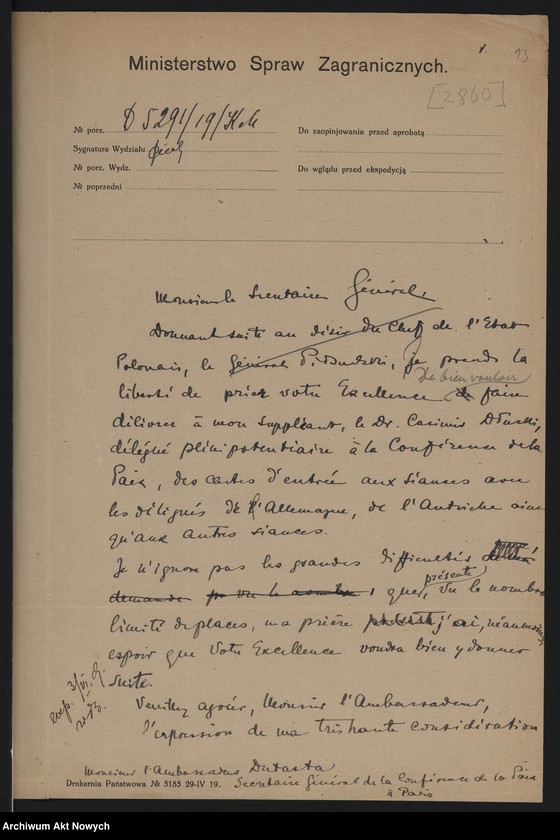 13
Ministerstwo Spraw Zagranicznych.
[2860]
№ porz. D 5291/19/
Do zaopinjowania przed aprobatą
Sygnatura Wydziału
№ porz. Wydz.
Do wglądu przed ekspedycją
№ poprzedni
Monsieur le Secrétaire Général
Donnant suite au désir du Chef de l'Etat
Polonais, le Général Pilsudski, je prends la
liberté de prier votre Excellence de bien vouloir faire
délivrer à mon suppléant, le Dr. Casimir Dłuski,
délégué plénipotentiaire à la Conférence de la
Paix, des cartes d'entrée aux séances avec
les délégués de l'Allemagne, de l'Autriche ainsi
qu'aux autres séances.
Je n'ignore pas les grandes difficultés
demande que présente, vu le nombre
limité de places, ma prière j'ai, néanmoins,
espoir que Votre Excellence voudra bien y donner
suite.
Veuillez agréer, Monsieur l'Ambassadeur,
l'expression de ma très haute considération
exp. 3/VI
Monsieur l'Ambassadeur Dutasta
Drukarnia Państwowa № 5185 29-IV 19.
Secrétaire Général de la Conférence de la Paix
à Paris
Archiwum Akt Nowych